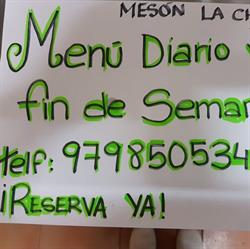 MESÓN LA CH
Menú Diario y
fin de Seman
telf: 979850534
¡RESERVA YA!